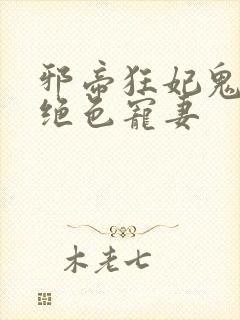 邪帝狂妃鬼
绝色宠妻
木老七